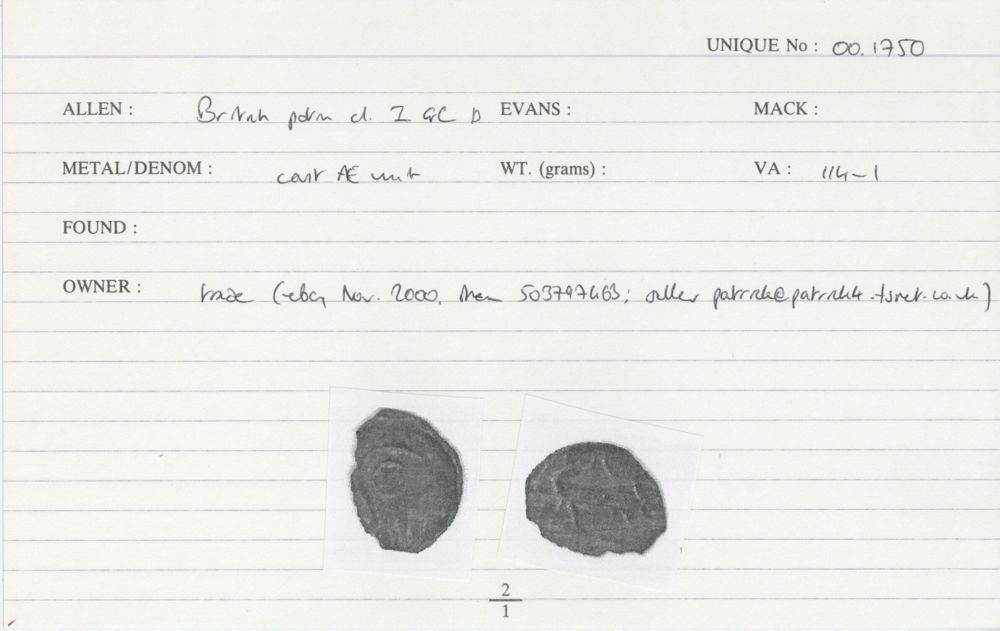 UNIQUE No : 00.1750
ALLEN : British potin cl. I GC D EVANS : MACK :
METAL/DENOM : cast Æ unit WT. (grams) : VA : 114-1
FOUND :
OWNER : trade (ebay Nov. 2000, item 503797463; seller
2
1